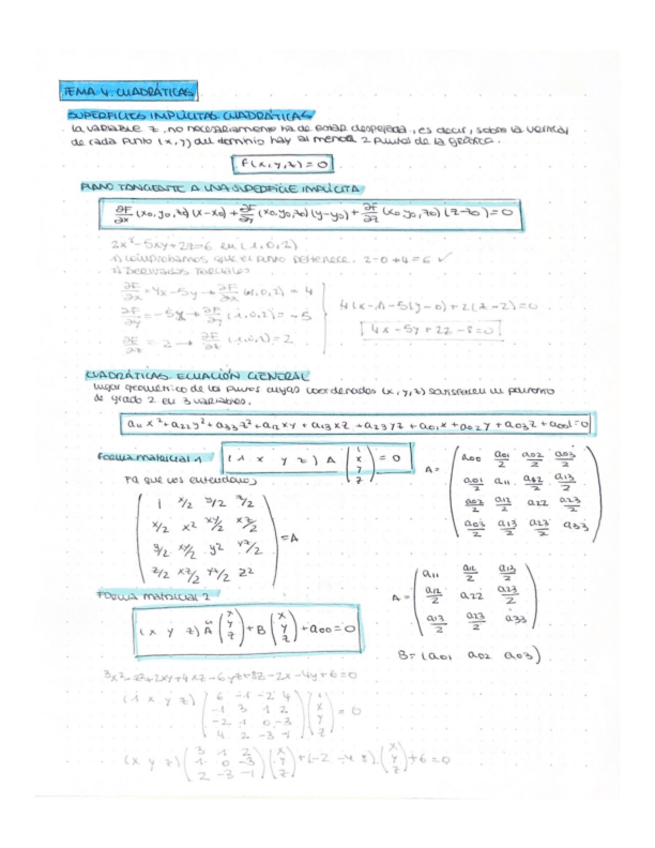 TEMA 4. CUADRÁTICAS
SUPERFICIES IMPLÍCITAS CUADRÁTICAS
La variable z, no necesariamente ha de estar despejada, es decir, sobre la vertical
de cada punto (x,y) del dominio hay al menos 2 puntos de la gráfica.
F(x,y,z)=0
PLANO TANGENTE A UNA SUPERFICIE IMPLÍCITA
∂F/∂x (x0,y0,z0)(x-x0) + ∂F/∂y (x0,y0,z0)(y-y0) + ∂F/∂z (x0,y0,z0)(z-z0)=0
2x²-5xy+2z=6 en (1,0,2)
1) Comprobamos que el punto pertenece. 2-0+4=6 ✓
2) Derivadas parciales
∂F/∂x = 4x-5y → ∂F/∂x (1,0,2) = 4
∂F/∂y = -5x → ∂F/∂y (1,0,2) = -5
∂F/∂z = 2 → ∂F/∂z (1,0,2) = 2
4(x-1)-5(y-0)+2(z-2)=0
4x-5y+2z-8=0
CUADRÁTICAS. ECUACIÓN GENERAL
Lugar geométrico de los puntos cuyas coordenadas (x,y,z) satisfacen un polinomio
de grado 2 en 3 variables.
a11x²+a22y²+a33z²+a12xy+a13xz+a23yz+a01x+a02y+a03z+a00=0
Forma matricial 1
(1 x y z) A (1 x y z) = 0
A= (a00 a01/2 a02/2 a03/2
a01/2 a11 a12/2 a13/2
a02/2 a12/2 a22 a23/2
a03/2 a13/2 a23/2 a33)
Pa que nos entendamos
(1 x/2 y/2 z/2
x/2 x² xy/2 xz/2
y/2 xy/2 y² yz/2
z/2 xz/2 yz/2 z²) =A
Forma matricial 2
(x y z) Ã (x y z) + B (x y z) + a00=0
A= (a11 a12/2 a13/2
a12/2 a22 a23/2
a13/2 a23/2 a33)
B=(a01 a02 a03)
3x²-z²+2xy+4xz-6yz+8z-2x-4y+6=0
(1 x y z) (6 -1 -2 4
-1 3 1 2
-2 1 0 -3
4 2 -3 -1) (1 x y z) = 0
(x y z) (3 1 2
1 0 -3
2 -3 -1) (x y z) + (-2 -4 8) (x y z) + 6=0